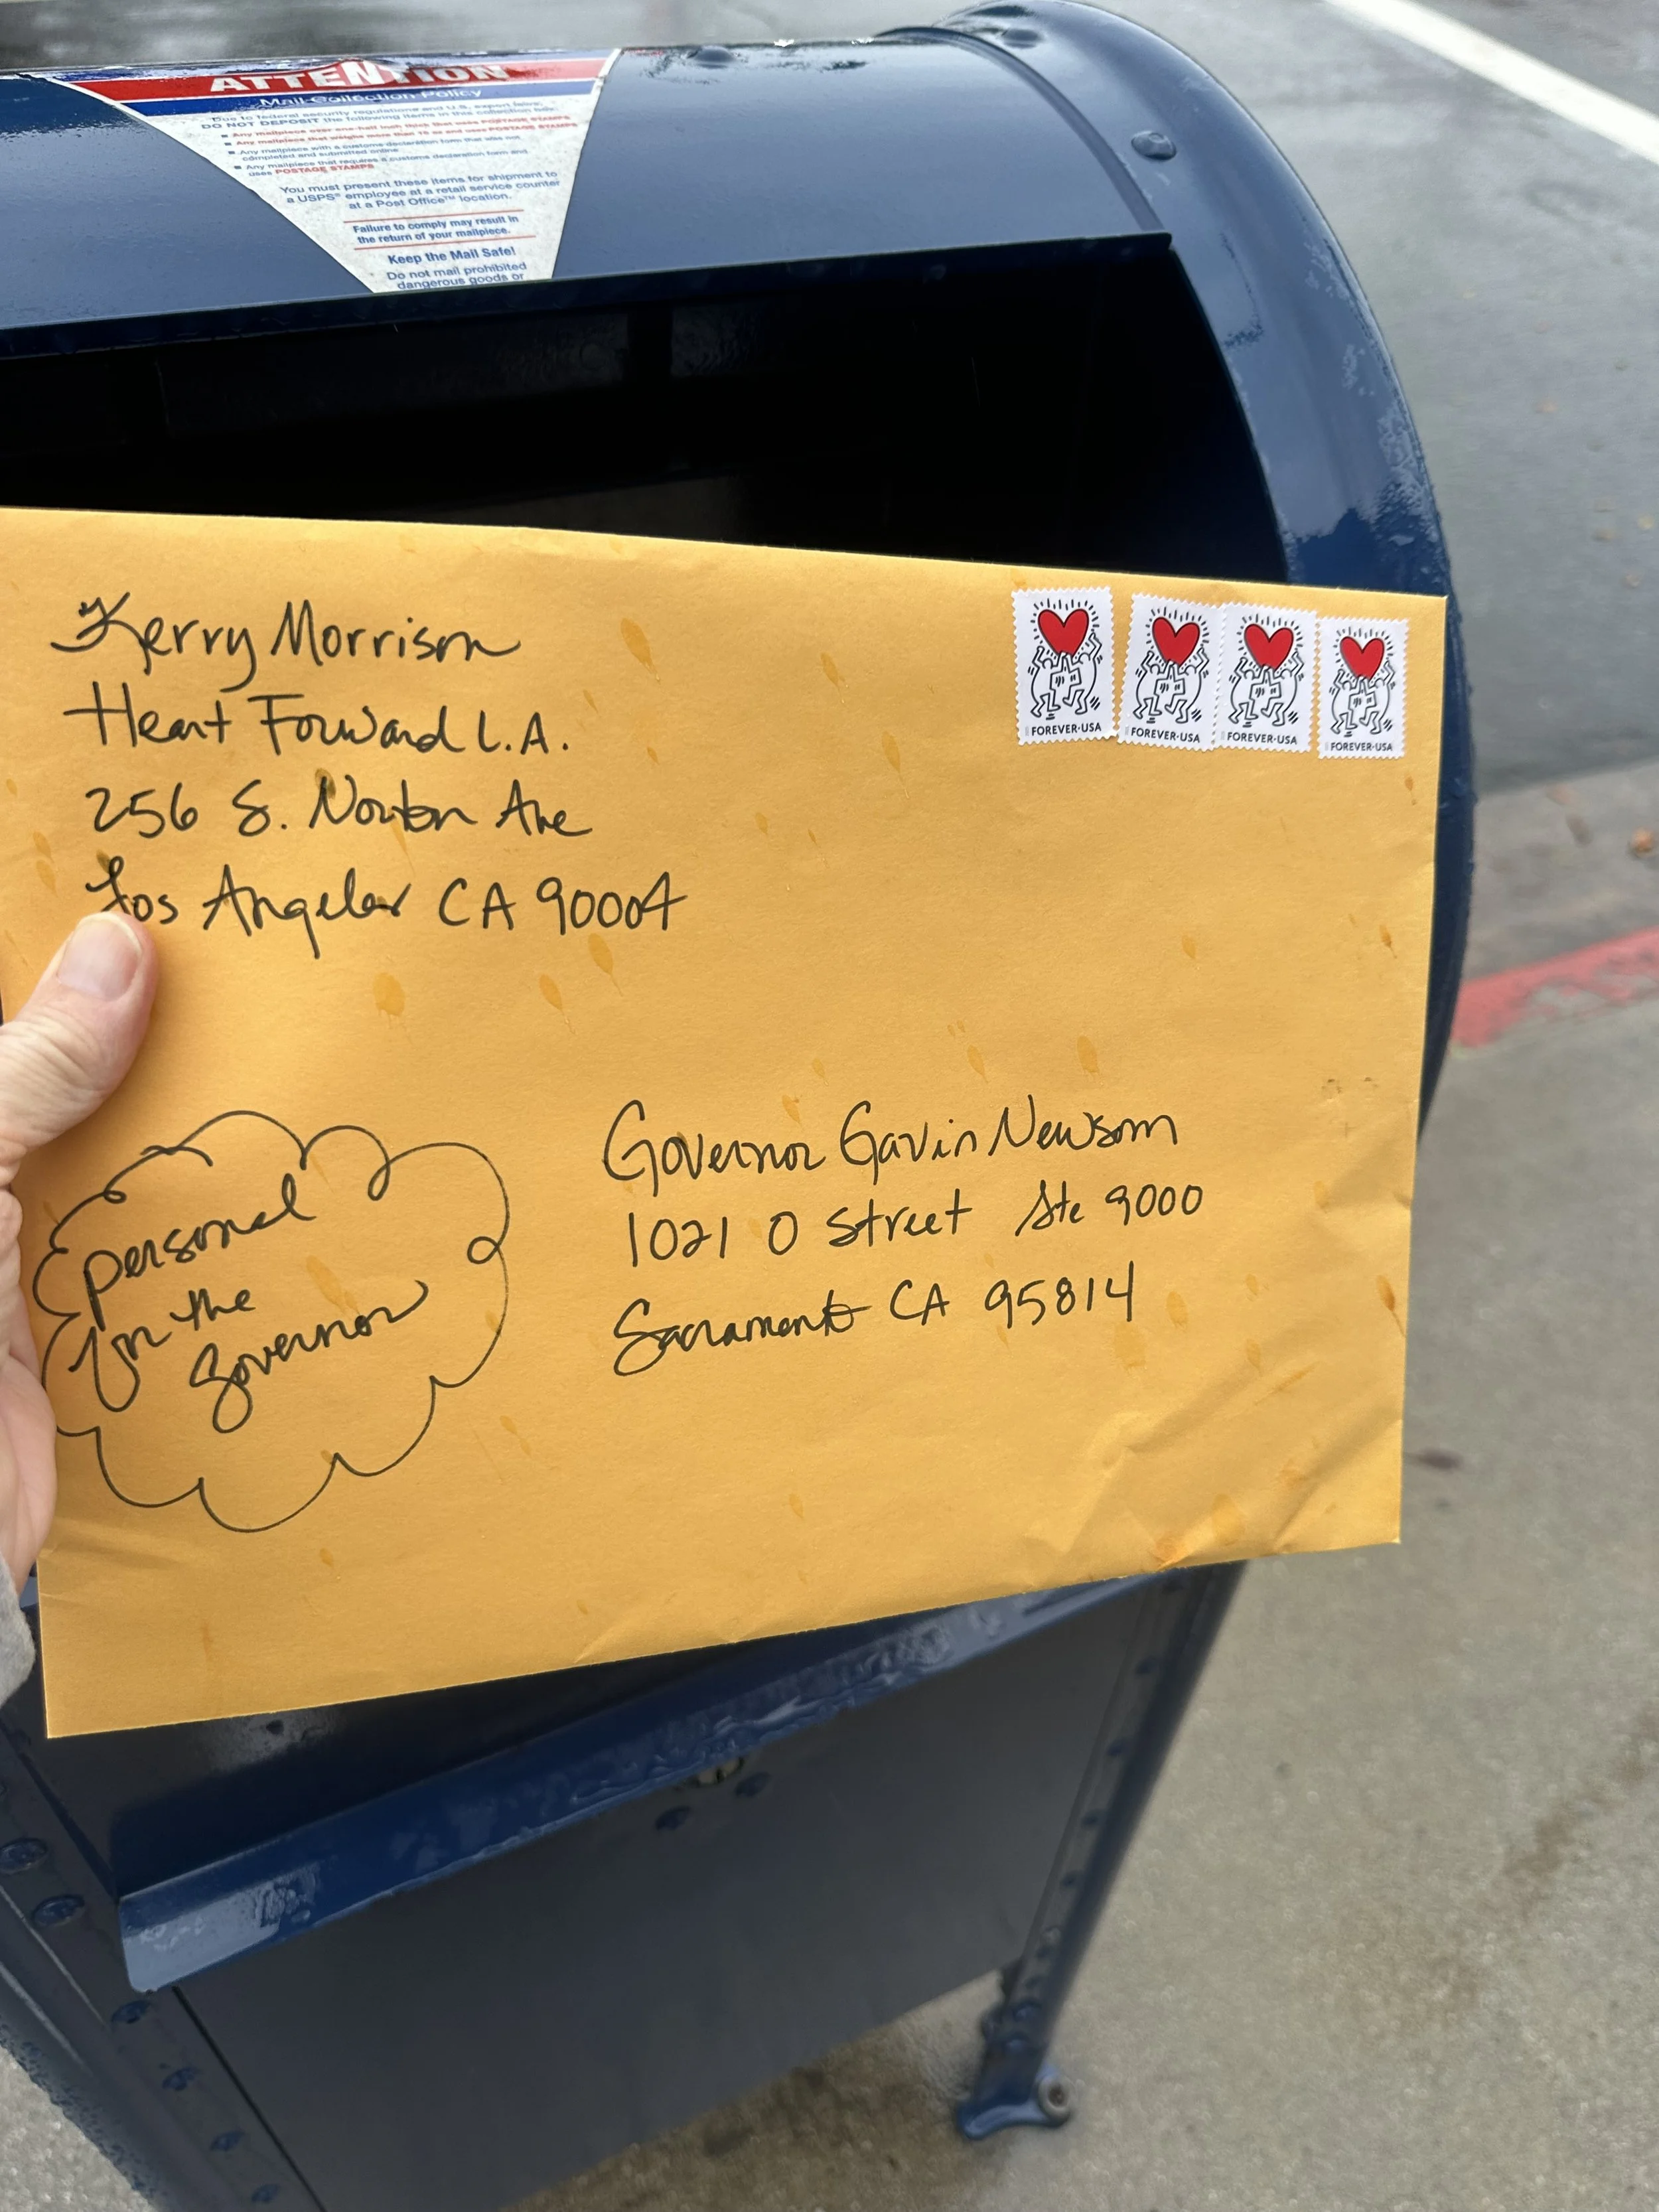 ATTENTION
Mail Collection Policy
Due to federal security regulations and U.S. export laws,
DO NOT DEPOSIT the following items in this collection box:
Any mailpiece over one-half inch thick that uses POSTAGE STAMPS
Any mailpiece that weighs more than 10 oz and uses POSTAGE STAMPS
Any mailpiece with a customs declaration form that was not
completed and submitted online
Any mailpiece that requires a customs declaration form and
uses POSTAGE STAMPS
You must present these items for shipment to
a USPS® employee at a retail service counter
at a Post Office™ location.
Failure to comply may result in
the return of your mailpiece.
Keep the Mail Safe!
Do not mail prohibited
dangerous goods or
Kerry Morrison
Heart Forward L.A.
256 S. Norton Ave
Los Angeles CA 90004
FOREVER·USA
FOREVER·USA
FOREVER·USA
FOREVER·USA
personal
for the
Governor
Governor Gavin Newsom
1021 O Street Ste 9000
Sacramento CA 95814